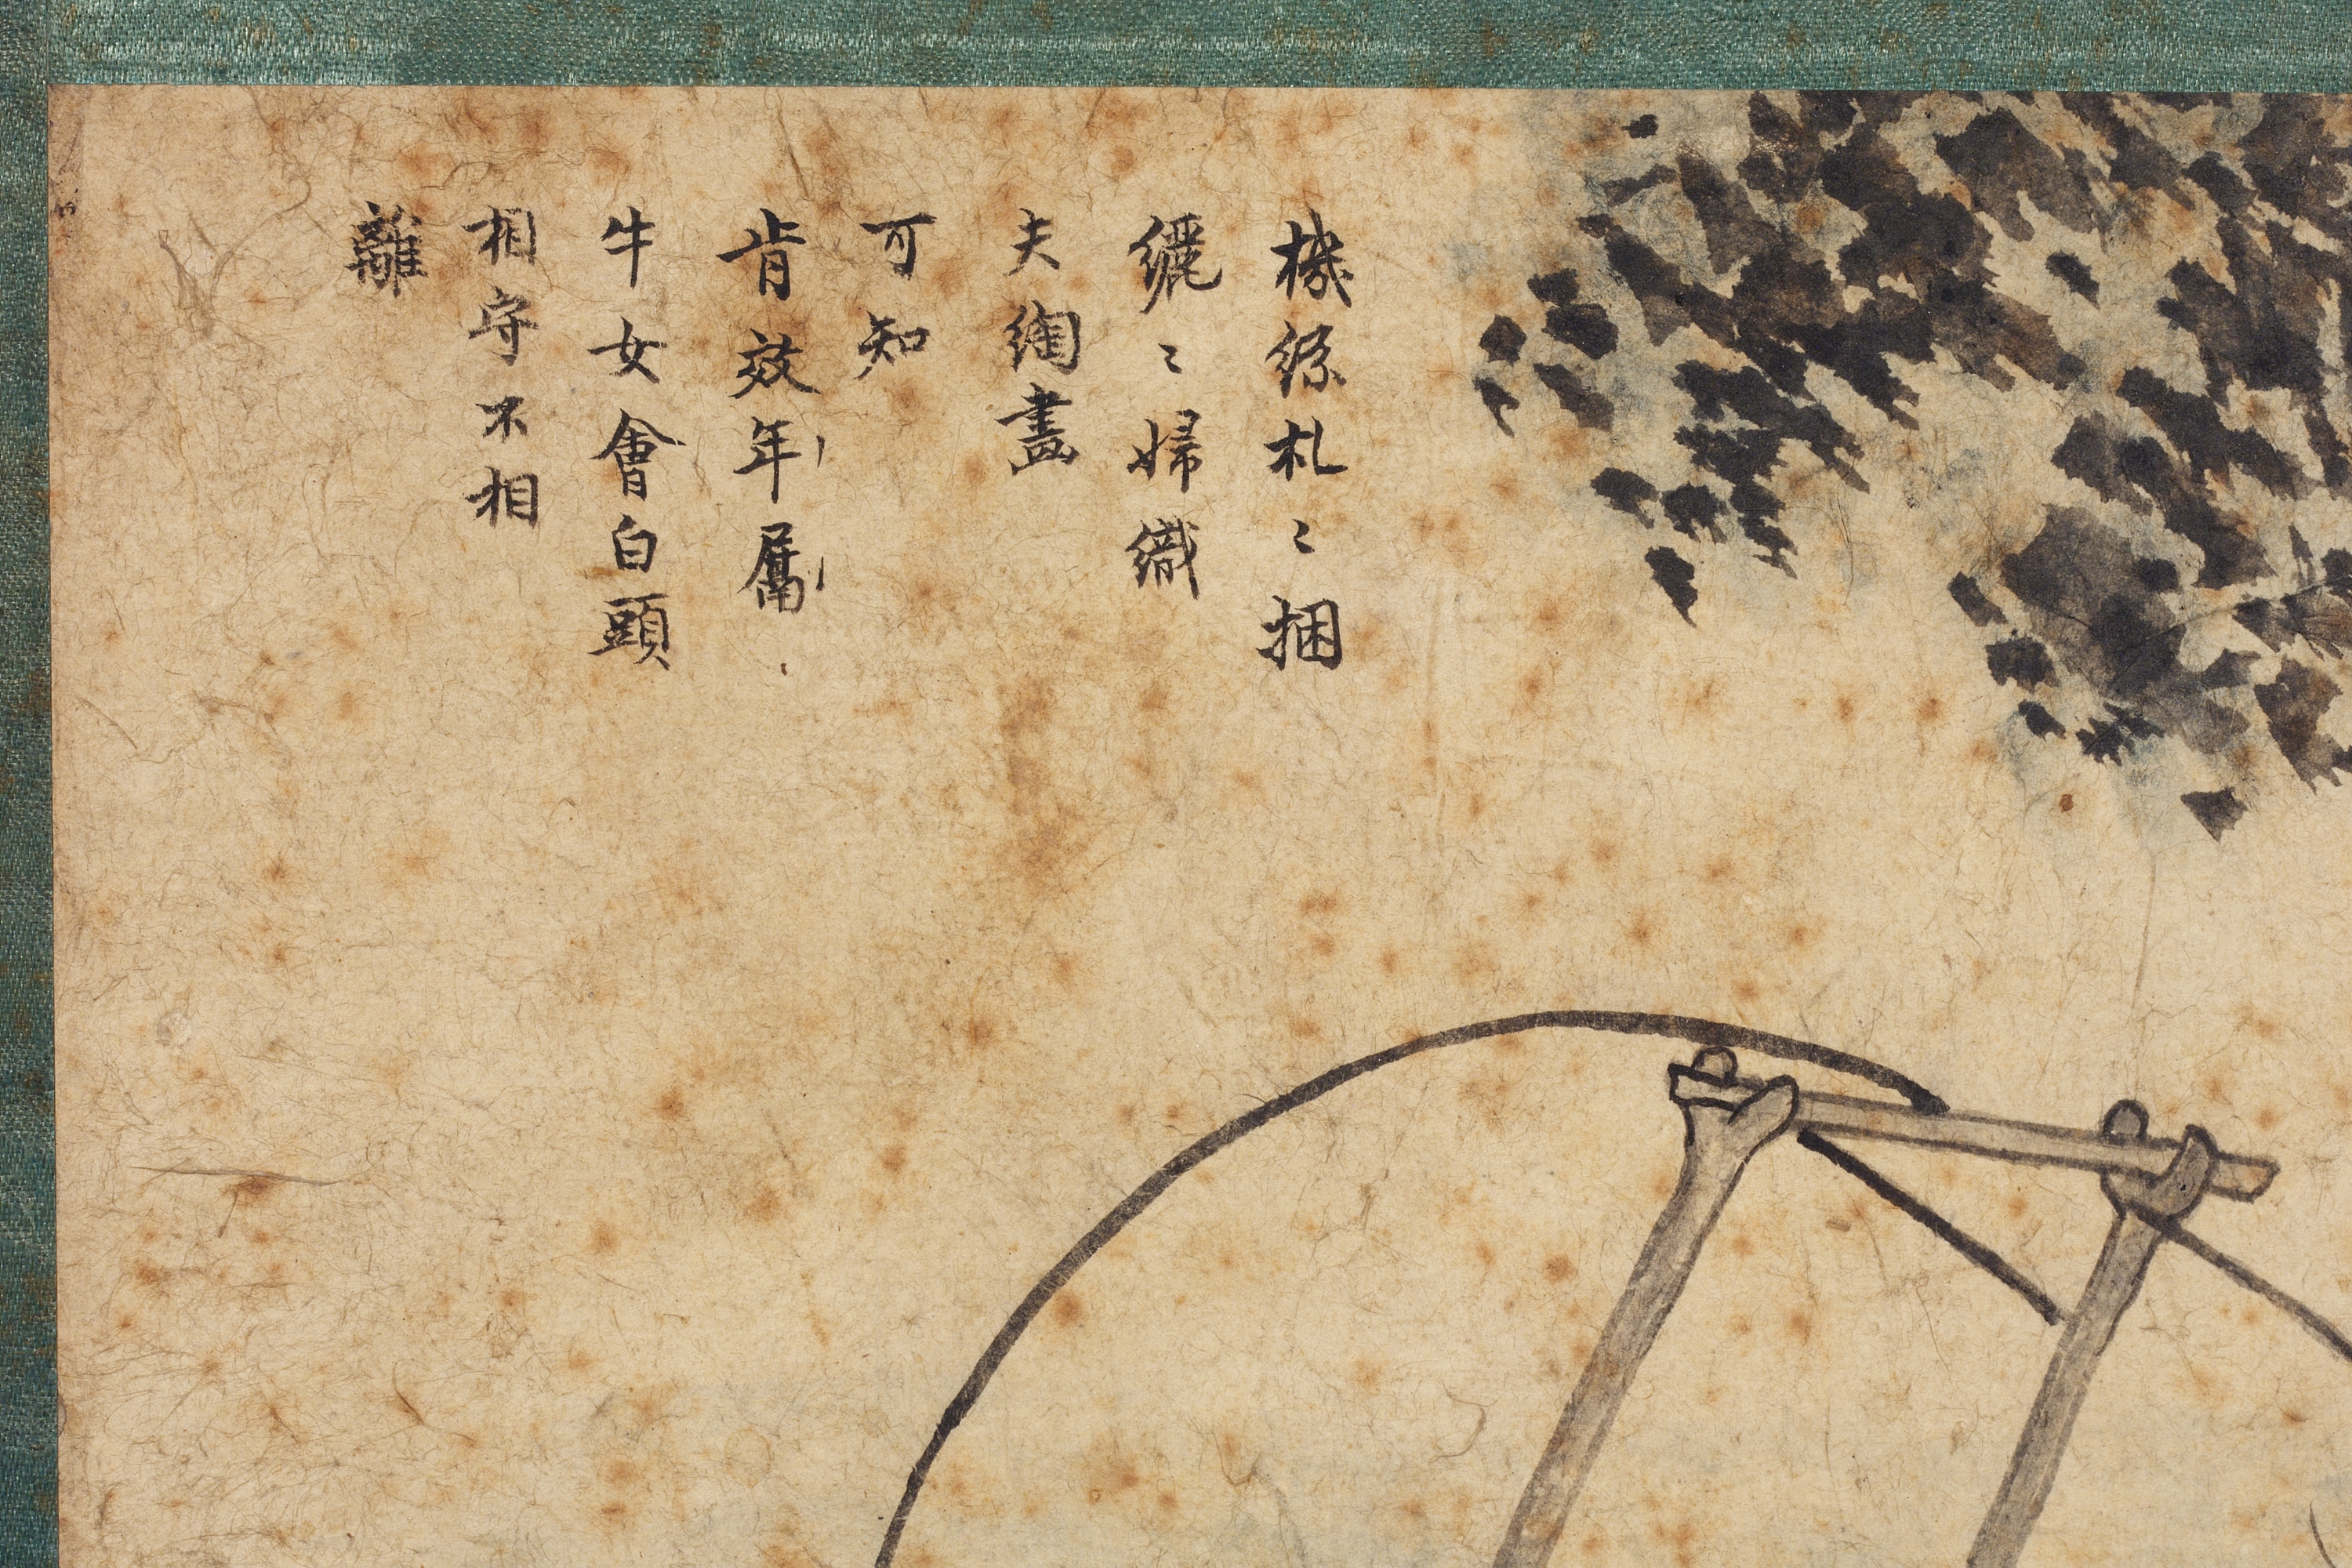 機絲札〻捆
纚〻婦織
夫綯畫
可知
肯效年屬
牛女會白頭
相守不相
離